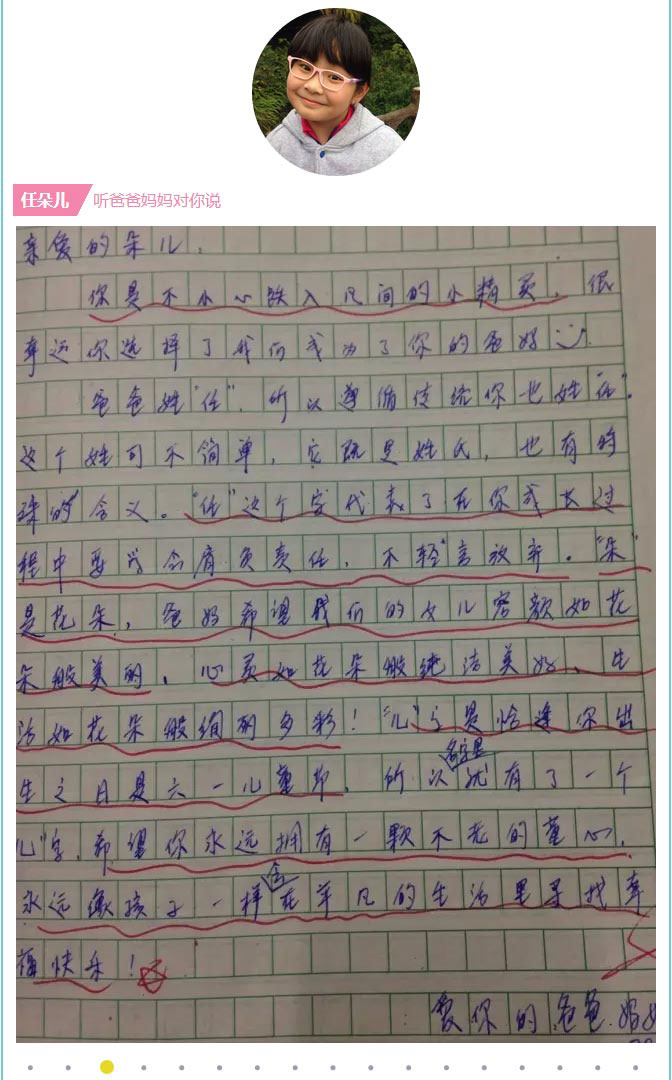 任朵儿 听爸爸妈妈对你说
亲爱的朵儿:
你是不小心跌入凡间的小精灵,很
幸运你选择了我们成为了你的爸妈
爸爸姓“任”,所以遵循传统你也姓“任”。
这个姓可不简单,它既是姓氏,也有特
殊的含义。“任”这个字代表了在你成长过
程中要学会肩负责任,不轻言放弃。“朵”
是花朵,爸妈希望我们的女儿容颜如花
朵般美丽,心灵如花朵般纯洁美好,生
活如花朵般绚丽多彩!“儿”是恰逢你出
生之日是六一儿童节,所以名字里就有了一个
“儿”字,希望你永远拥有一颗不老的童心,
永远像孩子一样会在平凡的生活里寻找幸
福快乐!
爱你的爸爸.妈妈